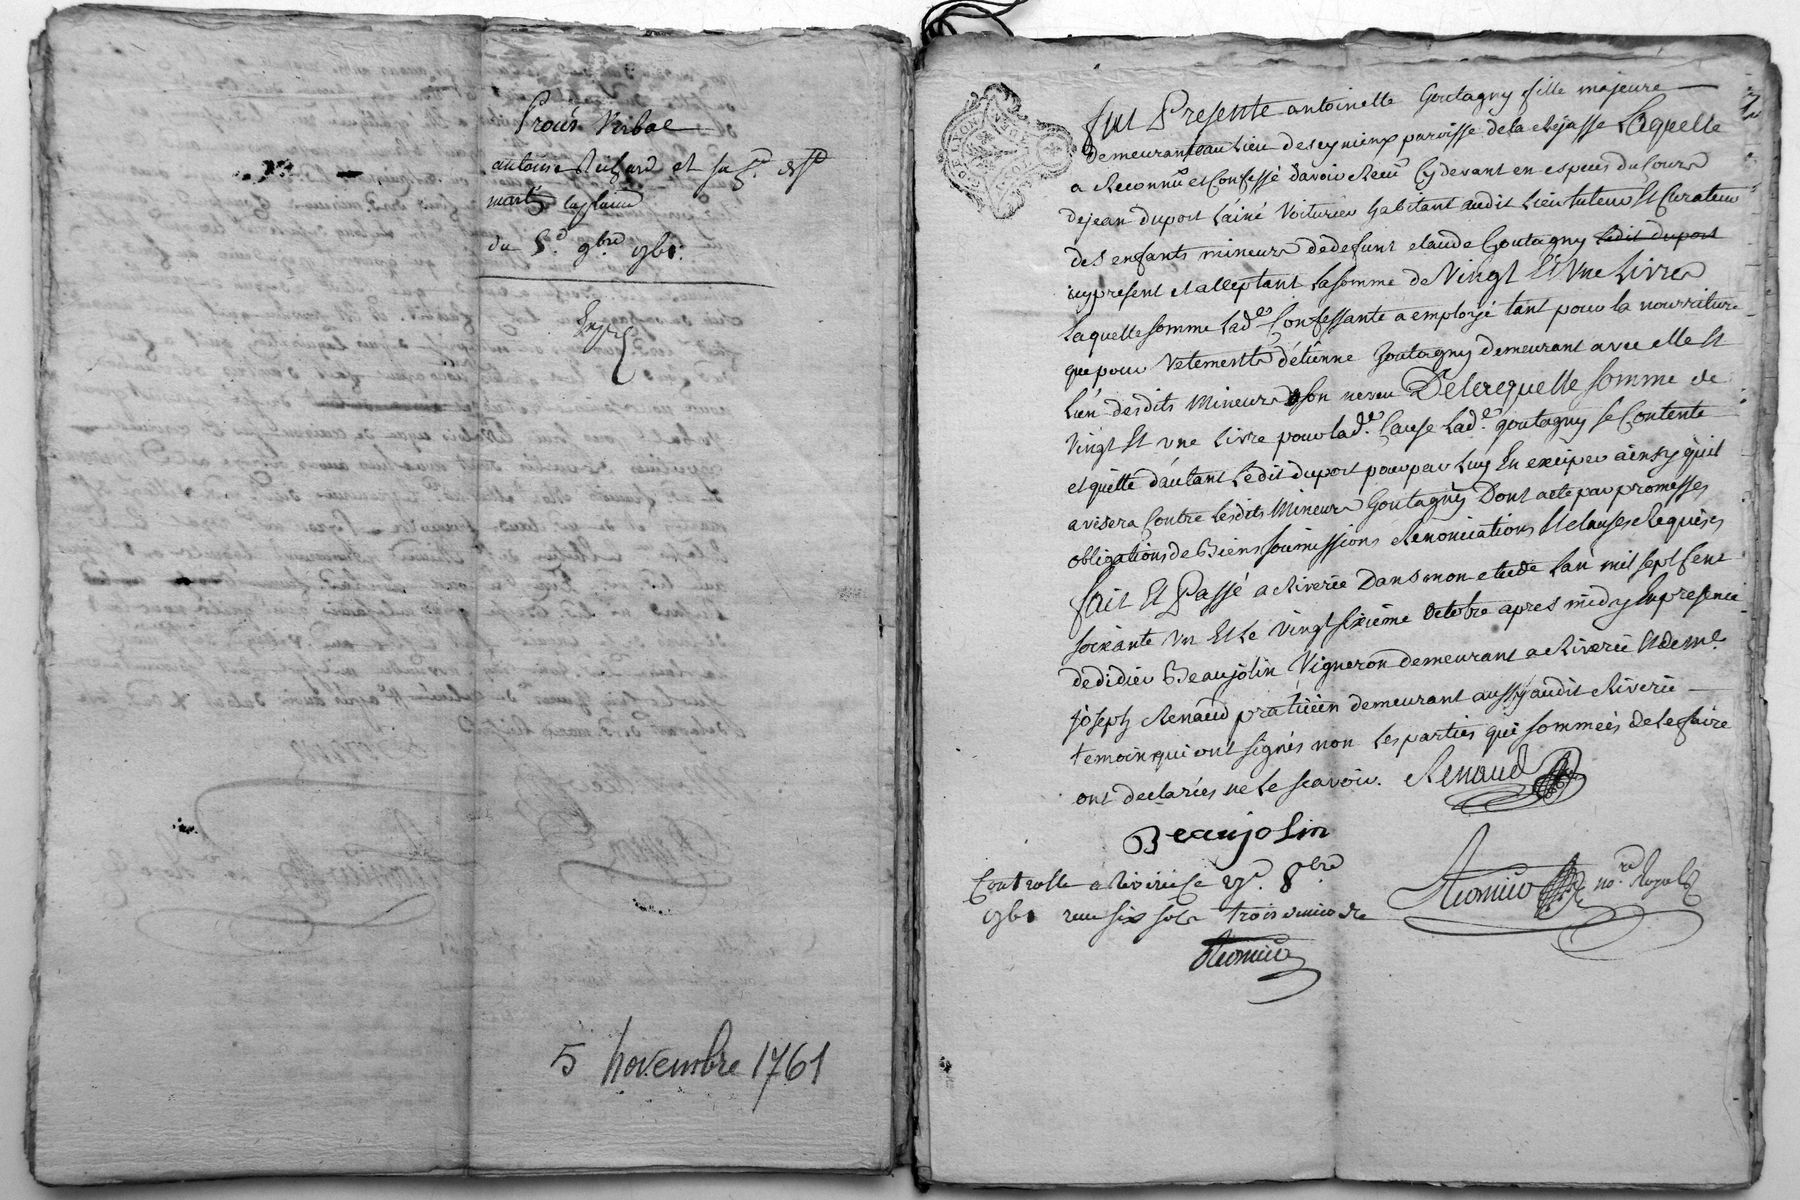 Procès Verbal
antoine Richard et sa
du 5.e 9.bre 1761.
5 novembre 1761
fut Presente antoinette Goutagny fille majeure
demeurant au Lieu de seynieux paroisse de la Rejasse Laquelle
a Reconnu et Confessé davoir Receu Cy devant en especes du Cours
de jean duport L'ainé Voiturier habitant audit Lieu tuteur Et Curateur
des enfants mineurs de defunt claude Goutagny Ledit duport
icy present et acceptant La somme de Vingt Et Une Livres
Laquelle somme Lad.e Confessante a employé tant pour la nourriture
que pour Vetements d'étienne Goutagny demeurant avec elle Et
L'un desdits Mineurs son neveu De laquelle somme de
Vingt Et une Livre pour lad.e Cause Lad.e goutagny se Contente
et quitte d'autant Ledit duport pour par Luy En exciper ainsy qu'il
avisera Contre Lesdits Mineurs Goutagny Dont acte par promesses
obligations de Biens soumissions Renonciations Et clauses Requises
fait Et Passé a Riverie Dans mon etude L'an mil sept cent
soixante Un Et Le Vingt sixieme octobre apres midy En presence
de didier Beaujolin Vigneron demeurant a Riverie Et de me.
joseph Renaud praticien demeurant aussy audit Riverie
temoins qui ont signés non Les parties qui sommées de Le faire
ont declarées ne Le scavoir. Renaud
Beaujolin
Controlle a Riverie Le 27.e 8.bre
1761 reçu six sols trois deniers
no.re Royal